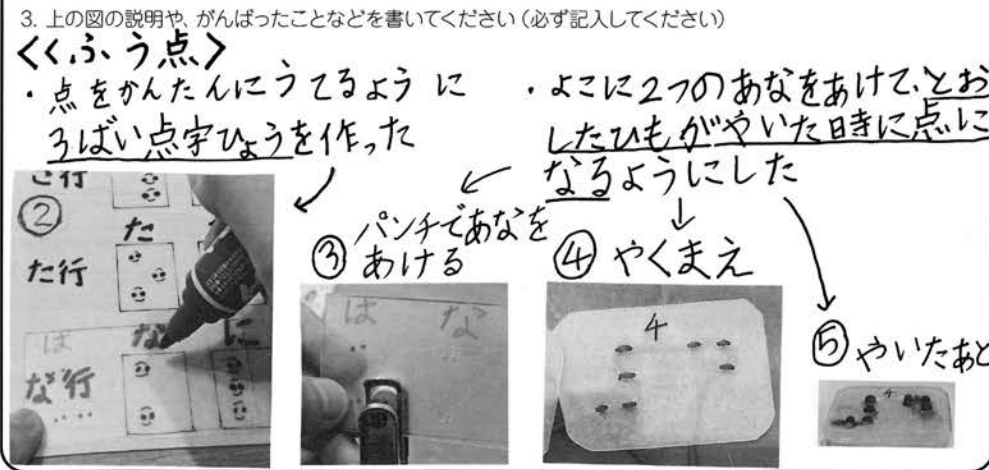 3. 上の図の説明や、がんばったことなどを書いてください（必ず記入してください）
<くふう点>
・点をかんたんにうてるように
3ばい点字ひょうを作った
・よこに2つのあなをあけて、とお
したひもがやいた時に点に
なるようにした
②
た
た行
は
な
に
な行
③パンチであなを
あける
は
な
④やくまえ
4
⑤やいたあと
4